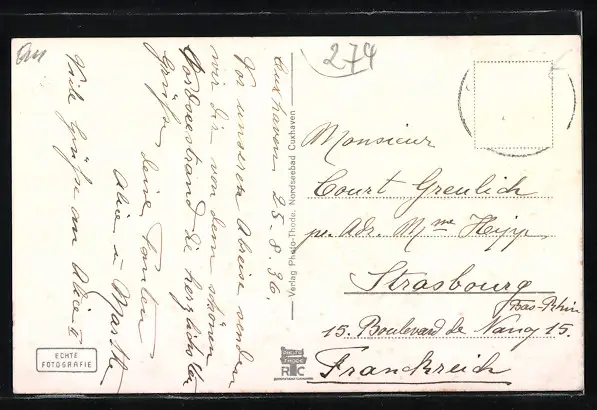 274
Cuxhaven 25-8.36.
Vor unserer Abreise senden
wir dir von dem schönen
Nordseestrand die herzlichsten
Grüße, deine Tanten
Alice u Martha
Viele Grüße an Alice II
Verlag Photo-Thode, Nordseebad Cuxhaven
Monsieur
Court Greulich
pr. Adr. Mme Hepp
Strasbourg
Bas-Rhin
15. Boulevard de Nancy 15.
Frankreich
ECHTE
FOTOGRAFIE
PHOTO
THODE